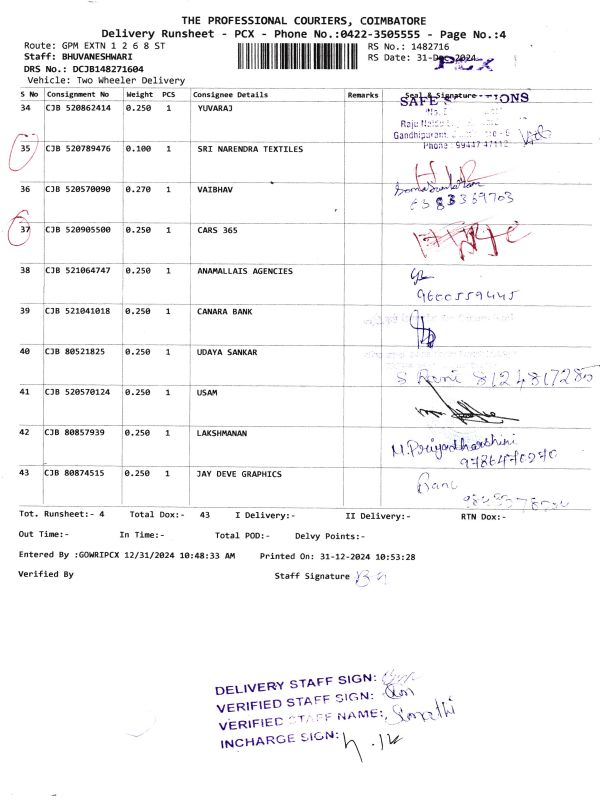 THE PROFESSIONAL COURIERS, COIMBATORE
Delivery Runsheet - PCX - Phone No.:0422-3505555 - Page No.:4
Route: GPM EXTN 1 2 6 8 ST RS No.: 1482716
Staff: BHUVANESHWARI RS Date: 31-Dec-2024
PCX
DRS No.: DCJB148271604
Vehicle: Two Wheeler Delivery
S No Consignment No Weight PCS Consignee Details Remarks Seal & Signature
34 CJB 520862414 0.250 1 YUVARAJ
SAFE
Gandhipuram
Phone: 9944747112
35 CJB 520789476 0.100 1 SRI NARENDRA TEXTILES
36 CJB 520570090 0.270 1 VAIBHAV
37 CJB 520905500 0.250 1 CARS 365
38 CJB 521064747 0.250 1 ANAMALLAIS AGENCIES
9600559445
39 CJB 521041018 0.250 1 CANARA BANK
40 CJB 80521825 0.250 1 UDAYA SANKAR
S Rani 8124817285
41 CJB 520570124 0.250 1 USAM
42 CJB 80857939 0.250 1 LAKSHMANAN
M.Priyadharshini
43 CJB 80874515 0.250 1 JAY DEVE GRAPHICS
Tot. Runsheet:- 4 Total Dox:- 43 I Delivery:- II Delivery:- RTN Dox:-
Out Time:- In Time:- Total POD:- Delvy Points:-
Entered By :GOWRIPCX 12/31/2024 10:48:33 AM Printed On: 31-12-2024 10:53:28
Verified By Staff Signature
DELIVERY STAFF SIGN:
VERIFIED STAFF SIGN:
VERIFIED STAFF NAME:
INCHARGE SIGN: